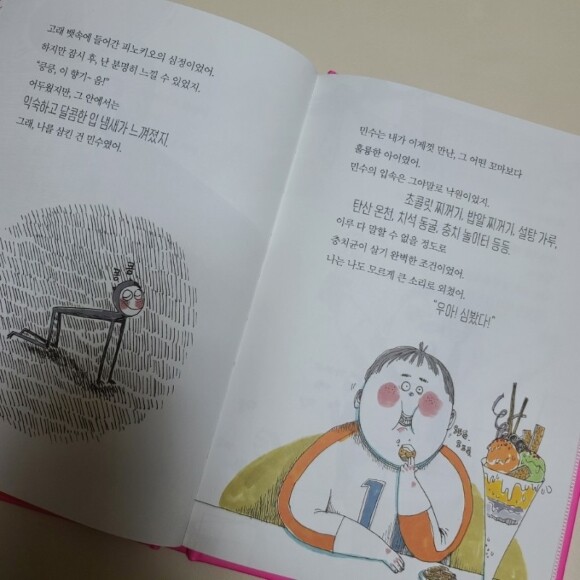 고래 뱃속에 들어간 피노키오의 심정이었어.
하지만 잠시 후, 난 분명히 느낄 수 있었지.
"킁킁, 이 향기~ 음!"
어두웠지만, 그 안에서는
익숙하고 달콤한 입 냄새가 느껴졌지.
그래, 나를 삼킨 건 민수였어.
킁킁
민수는 내가 이제껏 만난, 그 어떤 꼬마보다
훌륭한 아이였어.
민수의 입속은 그야말로 낙원이었지.
초콜릿 찌꺼기, 밥알 찌꺼기, 설탕 가루,
탄산 온천, 치석 동굴, 충치 놀이터 등등.
이루 다 말할 수 없을 정도로
충치균이 살기 완벽한 조건이었어.
나는 나도 모르게 큰 소리로 외쳤어.
"우아! 심봤다!"
1